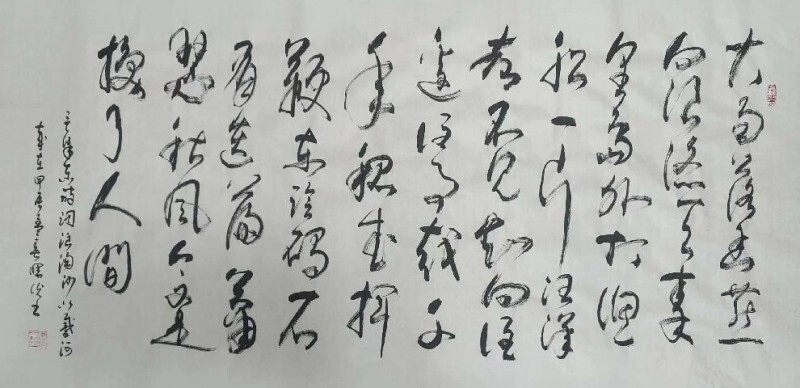 大雨落幽燕
白浪滔天秦
皇岛外打渔
船一片汪洋
都不见知向谁
边往事越千
年魏武挥
鞭东临碣石
有遗篇萧
瑟秋风今又是
换了人間
毛泽东诗词浪淘沙北戴河
岁在甲辰